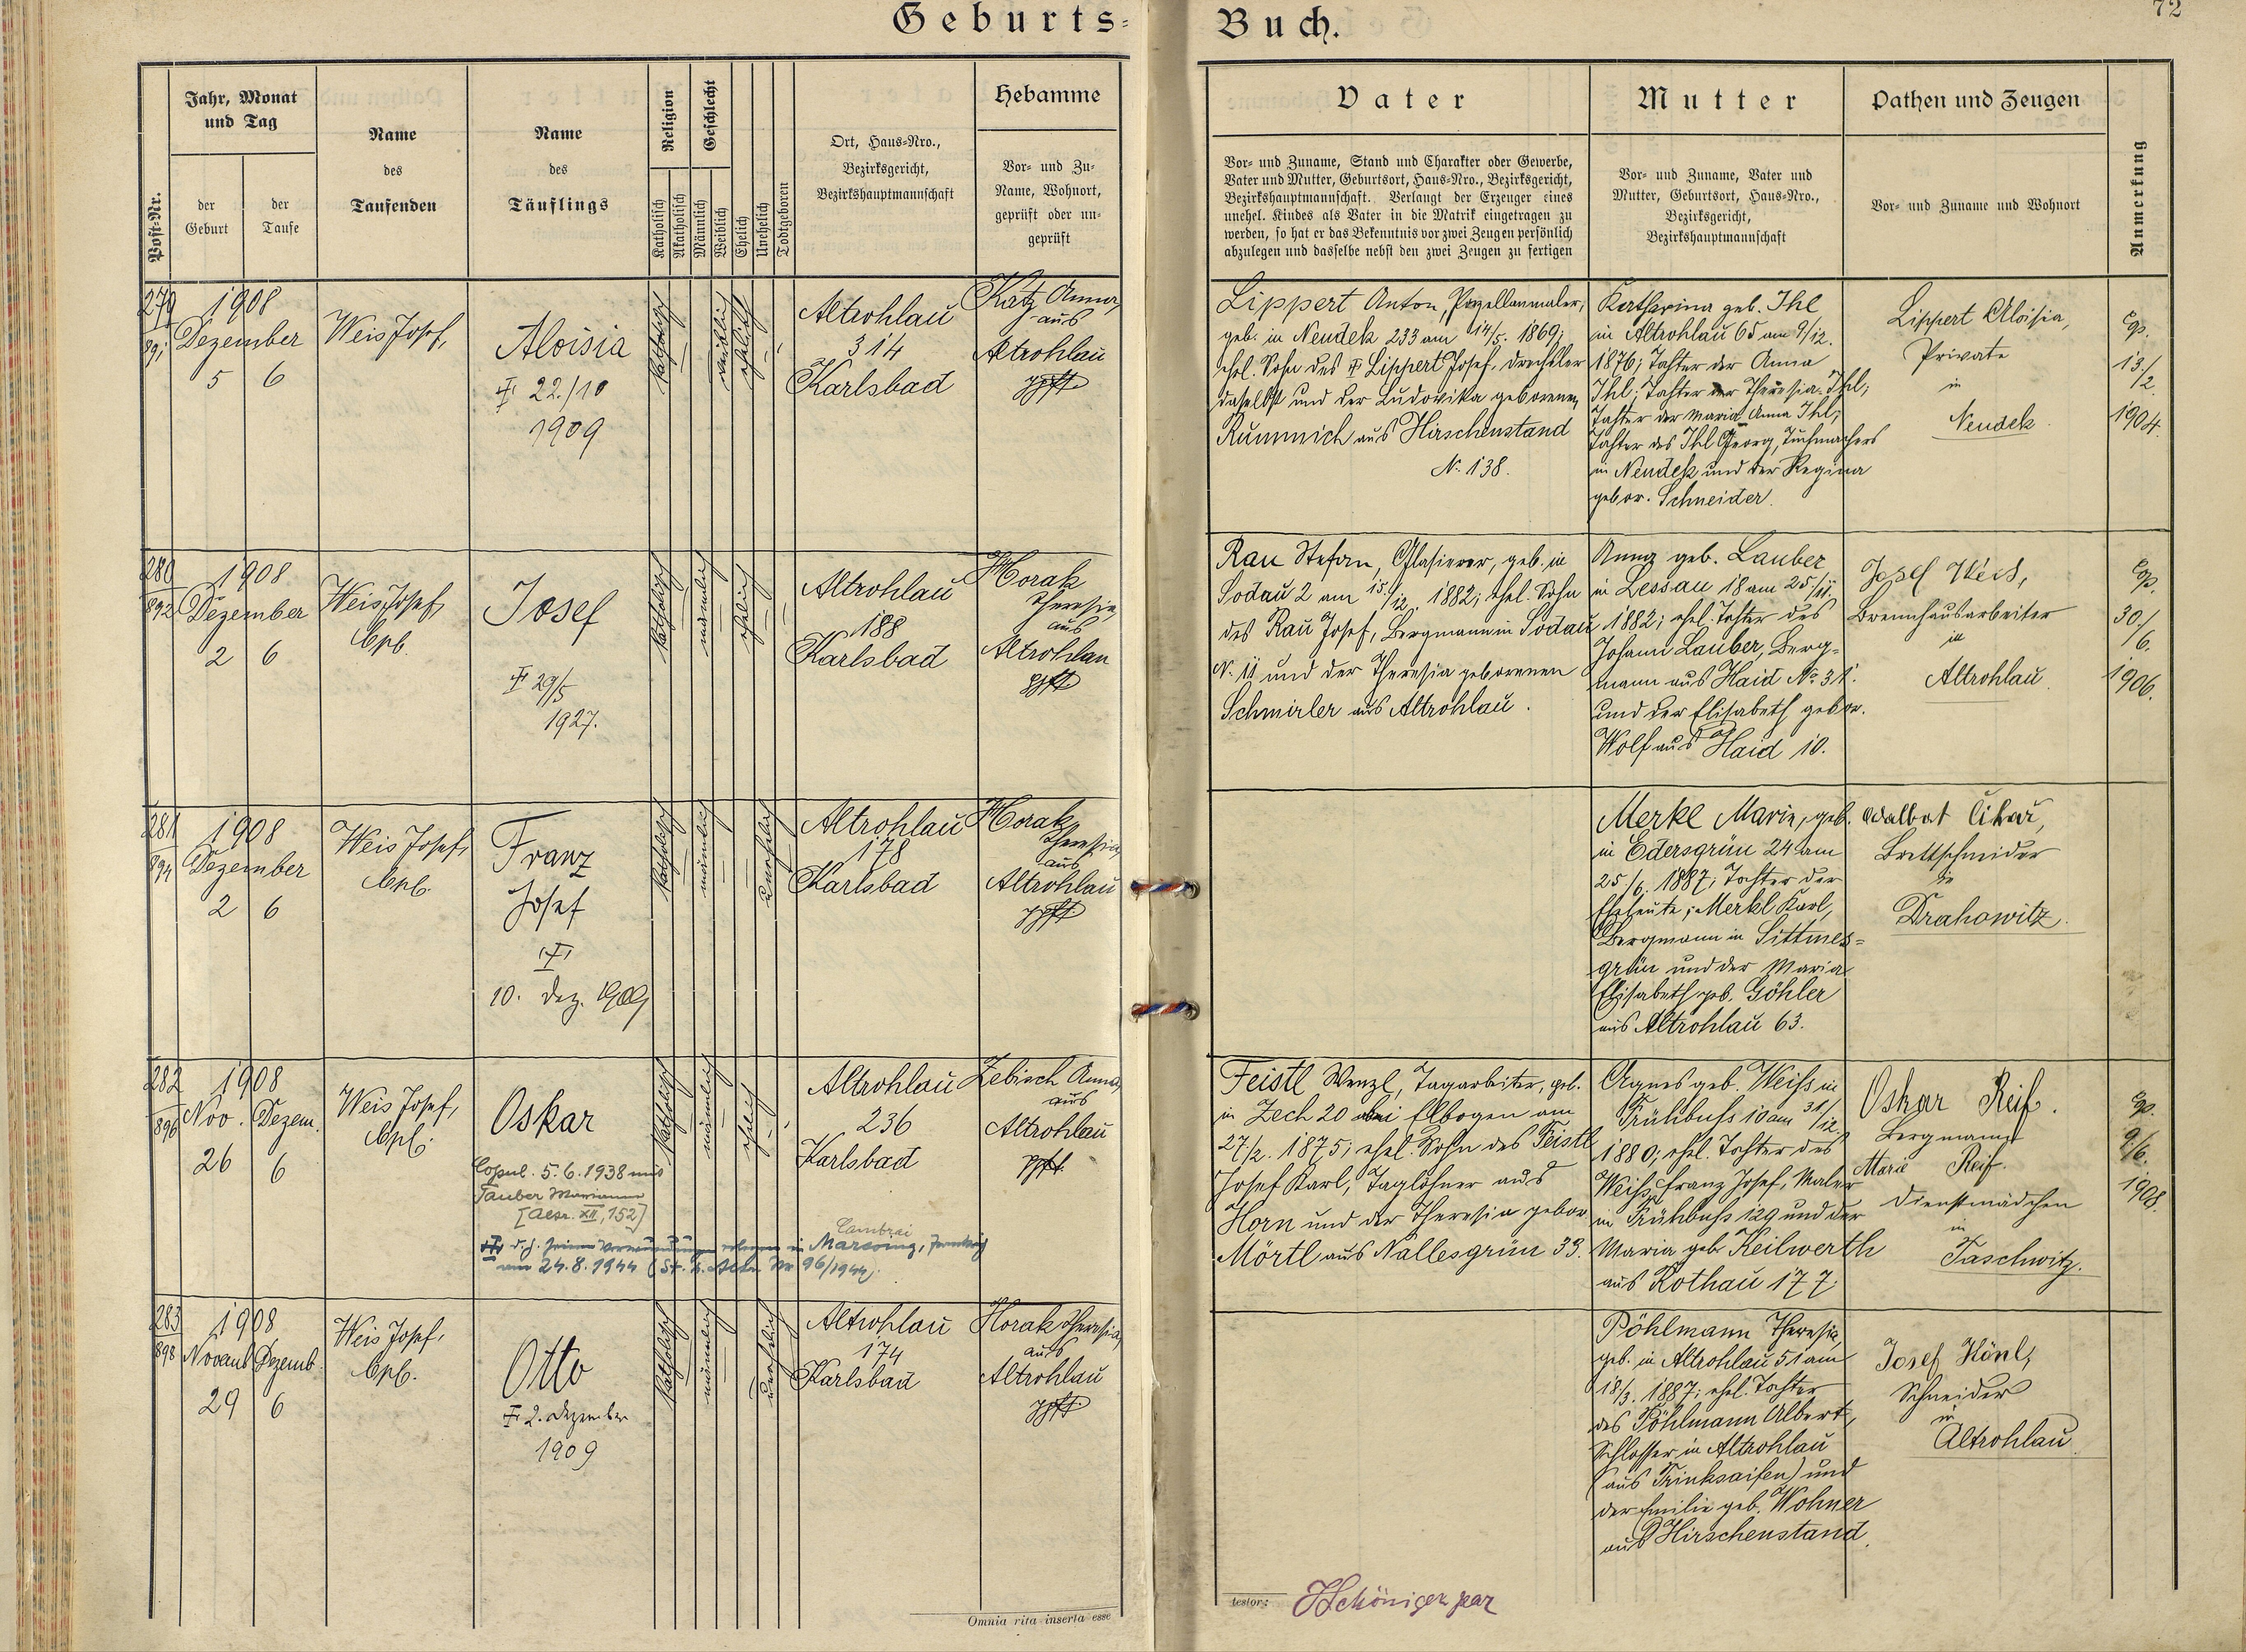 Geburts-
Buch.
72
Post-Nr.
Jahr, Monat
und Tag
der
Geburt
der
Taufe
Name
des
Taufenden
Name
des
Täuflings
Religion
Katholisch
Akatholisch
Geschlecht
Männlich
Weiblich
Ehelich
Unehelich
Todtgeboren
Ort, Haus-Nro.,
Bezirksgericht,
Bezirkshauptmannschaft
Hebamme
Vor- und Zu-
Name, Wohnort,
geprüft oder un-
geprüft
Vater
Vor- und Zuname, Stand und Charakter oder Gewerbe,
Vater und Mutter, Geburtsort, Haus-Nro., Bezirksgericht,
Bezirkshauptmannschaft. Verlangt der Erzeuger eines
unehel. Kindes als Vater in die Matrik eingetragen zu
werden, so hat er das Bekenntnis vor zwei Zeugen persönlich
abzulegen und dasselbe nebst den zwei Zeugen zu fertigen
Mutter
Vor- und Zuname, Vater und
Mutter, Geburtsort, Haus-Nro.,
Bezirksgericht,
Bezirkshauptmannschaft
Pathen und Zeugen
Vor- und Zuname und Wohnort
Anmerkung
279
891
1908
Dezember
5 6
Weis Josef,
Aloisia
22./10
1909
katholisch
weiblich
ehelich
Altrohlau
314
Karlsbad
Katz Anna,
aus
Altrohlau
gpft
Lippert Anton, Porzellanmaler,
geb. in Neudek 233 am 14/5. 1869;
ehel. Sohn des Lippert Josef, Drechsler
daselbst und der Ludovika geborenen
Rummich aus Hirschenstand
N. 138.
Katharina geb. Ihl
in Altrohlau 65 am 9/12.
1876; Tochter der Anna
Ihl; Tochter der Theresia Ihl;
Tochter der Maria Anna Ihl;
Tochter des Ihl Georg, Tuchmachers
in Neudek und der Regina
gebor. Schneider.
Lippert Aloisia,
Private
in
Neudek
Cp.
13./
2.
1904.
280
892
1908
Dezember
2 6
Weis Josef,
Cpl.
Josef
29/5
1927.
katholisch
männlich
ehelich
Altrohlau
188
Karlsbad
Horak
Theresia,
aus
Altrohlau
gpft
Rau Stefan, Glasierer, geb. in
Sodau 2 am 15./12. 1882; ehel. Sohn
des Rau Josef, Bergmann in Sodau
N. 11 und der Theresia geborenen
Schmirler aus Altrohlau.
Anna geb. Lauber
in Lessau 18 am 25./11.
1882; ehel. Tochter des
Johann Lauber, Berg-
mann aus Haid No 31.
und der Elisabeth gebor.
Wolf aus Haid 10.
Josef Weis,
Brennhausarbeiter
in
Altrohlau
Cp.
30./
6.
1906.
281
894
1908
Dezember
2 6
Weis Josef,
Cpl.
Franz
Josef
10. Dez. 1909
katholisch
männlich
unehelich
Altrohlau
178
Karlsbad
Horak
Theresia,
aus
Altrohlau
gpft.
Merkl Marie, geb.
in Edersgrün 24 am
25./6. 1887; Tochter der
Eheleute: Merkl Karl,
Bergmann in Sittmes-
grün und der Maria
Elisabeth geb. Göhler
aus Altrohlau 63.
Brettschneider
in
Drahowitz.
282
896
1908
Nov. Dezem.
26 6
Weis Josef,
Cpl.
Oskar
Copul. 5.6.1938 mit
Tauber Marianne
XII, 152]
Cambrai
in Marcoing,
am 24.8.1944 96/1944
katholisch
männlich
ehelich
Altrohlau
236
Karlsbad
Zebisch Anna,
aus
Altrohlau
gpft.
Feistl Wenzl, Tagarbeiter, geb.
in Zech 20 bei Elbogen am
27/2. 1875; ehel. Sohn des Feistl
Josef Karl, Taglöhner aus
Horn und der Theresia gebor.
Mörtl aus Nallesgrün 33.
Agnes geb. Weiss in
Frühbuß 10 am 31/12.
1880; ehel. Tochter des
Weiss Franz Josef, Maler
in Frühbuß 129 und der
Maria geb. Keilwerth
aus Rothau 177.
Oskar Reif.
Bergmann
Marie Reif.
Dienstmädchen
in
Taschwitz.
Cp.
9./6.
1908.
283
898
1908
Novemb. Dezemb.
29 6
Weis Josef,
Cpl.
Otto
2. Dezember
1909
katholisch
männlich
unehelich
Altrohlau
174
Karlsbad
Horak Theresia,
aus
Altrohlau
gpft.
Pöhlmann Theresia,
geb. in Altrohlau 51 am
18/3. 1887; ehel. Tochter
des Pöhlmann Albert,
Schlosser in Altrohlau
(aus Trinksaifen) und
der Emilie geb. Wohner
aus Hirschenstand.
Josef Hönl,
Schneider
in
Altrohlau
Omnia rita inserta esse
testor: